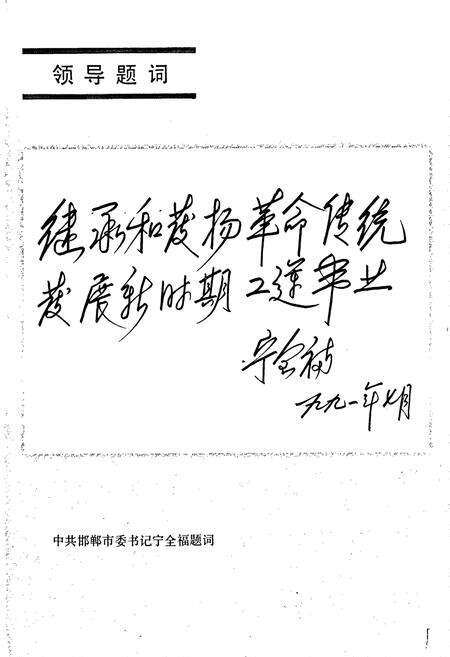 领导题词
继承和发扬革命传统
发展新时期工运事业
宁全福
一九九一年七月
中共邯郸市委书记宁全福题词